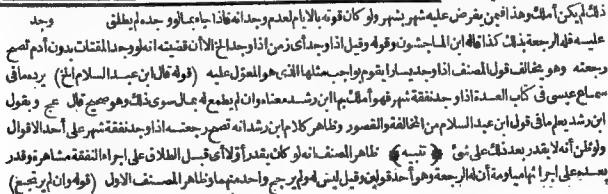 ذلك لم يكن أملك وهذا فيمن يفرض عليه شهر بشهر ولو كان قوته بالايام لعدم وجدانه فاذا جاء بمال ووجده لم يطلق وجد
عليسه فله الرجعة بذلك كذا قاله ابن الماجشون وقوله وقيل اذا وجد أى زمن اذا وجد الخ الا أن قضيته انه لو وجد المقتات بدون أدم تصح
رجعته وهو يخالف قول المصنف اذا وجد يسارا يقوم بواجب مثلها الذى هو المعول عليه (قوله قال ابن عبد السلام الخ) يرده ما فى
سماع عيسى فى كتاب العدة اذا وجد نفقة شهر فهو أملك بها ابن رشد معناه وان لم يطمع له بمال سوى ذلك وهو صحيح قال عج وبقول
ابن رشد يعلم ما فى قول ابن عبد السلام من المخالفة والقصور وظاهر كلام ابن رشد انه تصح رجعته اذا وجد نفقة شهر على أحد الاقوال
ولو ظن أنه لا يقدر بعد ذلك على شئ ﴿تنبيه﴾ ظاهر المصنف انه لو كان يقدر أولا أى قبل الطلاق على اجراء النفقة مشاهرة وقدر
بعده على اجرائها مياومة أن له الرجعة وهو أحد قولين وقيل ليس له ولم يرجح واحد منهما وظاهر المصنف الاول (قوله وان لم